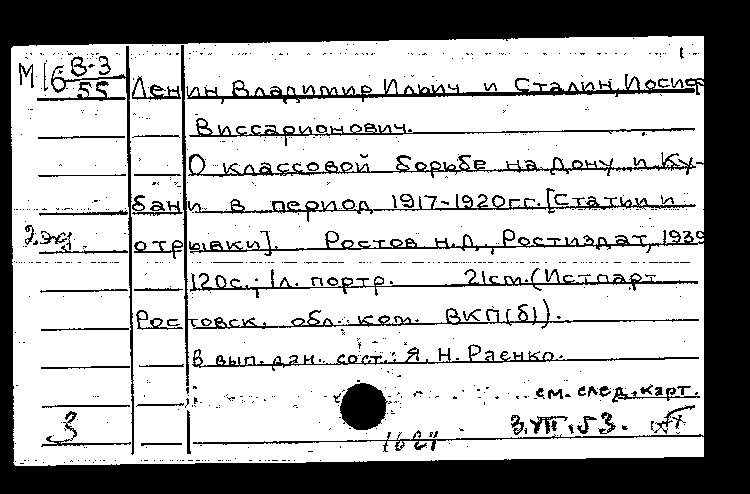 1
М16 В-3
55
Ленин, Владимир Ильич и Сталин, Иосиф
Виссарионович.
О классовой борьбе на Дону и Ку-
бани в период 1917-1920гг. [Статьи и
2 экз. отрывки]. Ростов н.Д., Ростиздат, 1939
120с.; 1л. портр. 21cm. (Истпарт
Ростовск. обл. ком. ВКП(б)).
В вып. дан. сост.: Я. Н. Раенко.
см. след. карт.
3 3.VII.53.
1621